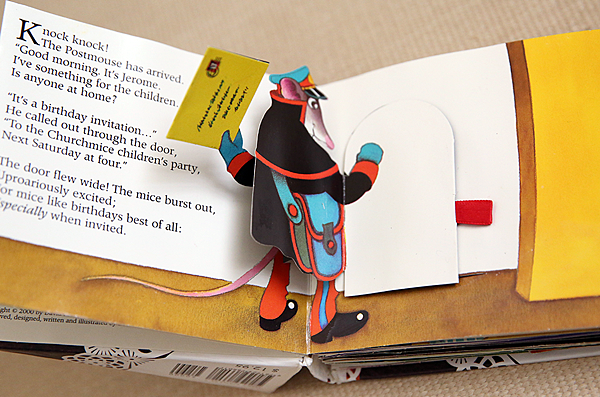 Knock knock!
The Postmouse has arrived.
"Good morning. It's Jerome.
I've something for the children.
Is anyone at home?
"It's a birthday invitation..."
He called out through the door,
"To the Churchmice children's party,
Next Saturday at four."
The door flew wide! The mice burst out,
Uproariously excited;
For mice like birthdays best of all:
Especially when invited.
© 2000 by
designed, written and illustrated by
$12.95